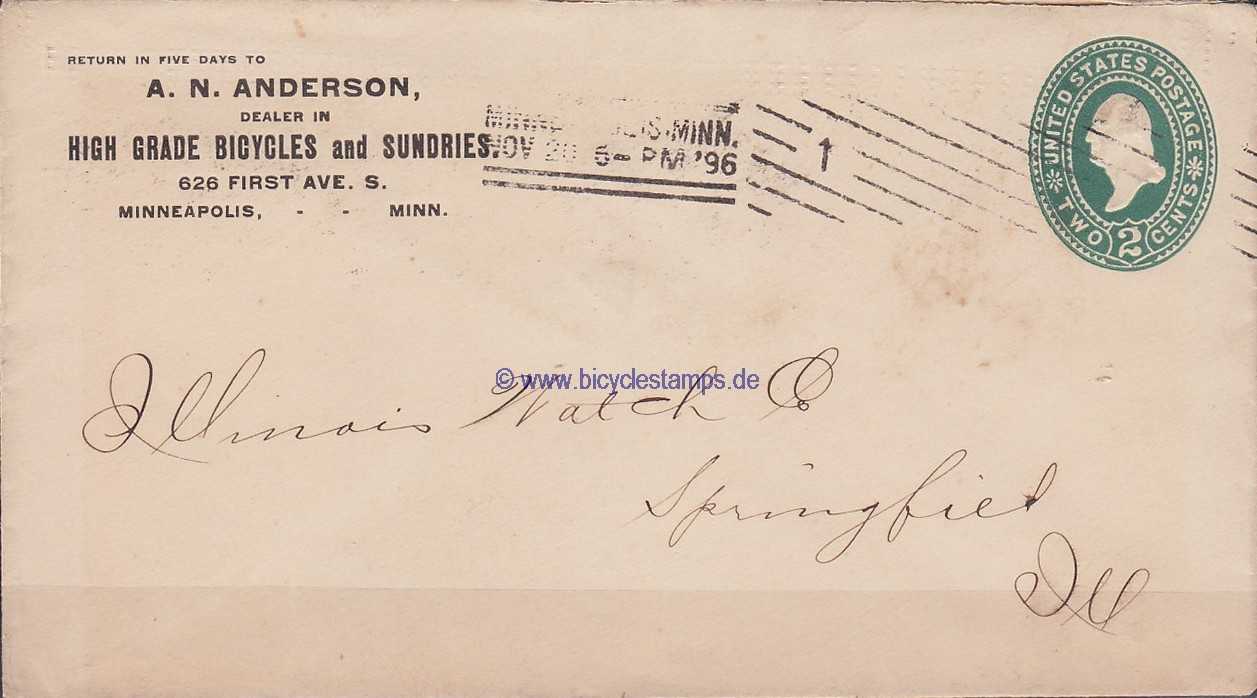 RETURN IN FIVE DAYS TO
A. N. ANDERSON,
DEALER IN
HIGH GRADE BICYCLES and SUNDRIES.
626 FIRST AVE. S.
MINNEAPOLIS, - - MINN.
MINN.
NOV 20 6- PM '96
1
UNITED STATES POSTAGE
TWO 2 CENTS
© www.bicyclestamps.de
Illinois Watch Co
Springfield
Ill